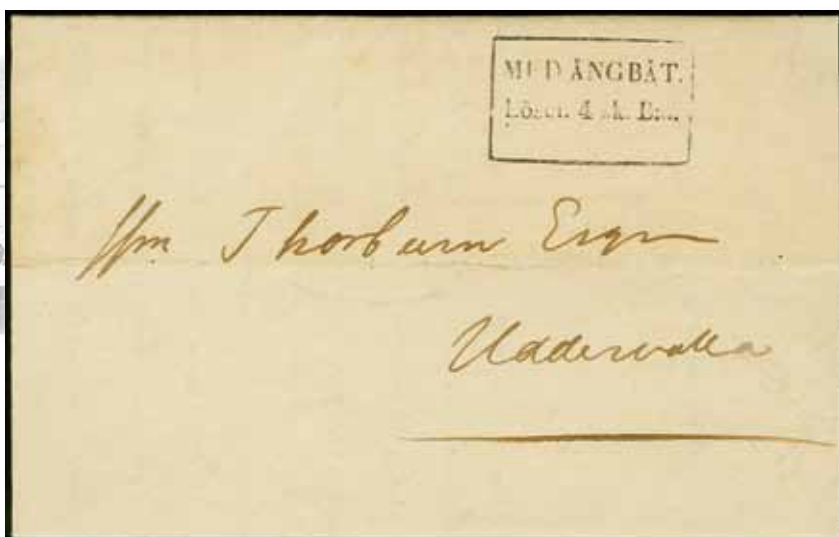 MED ÅNGBÅT.
Lösen. 4 sk. B:o.
Wm Thorburn Esqr
Uddewalla